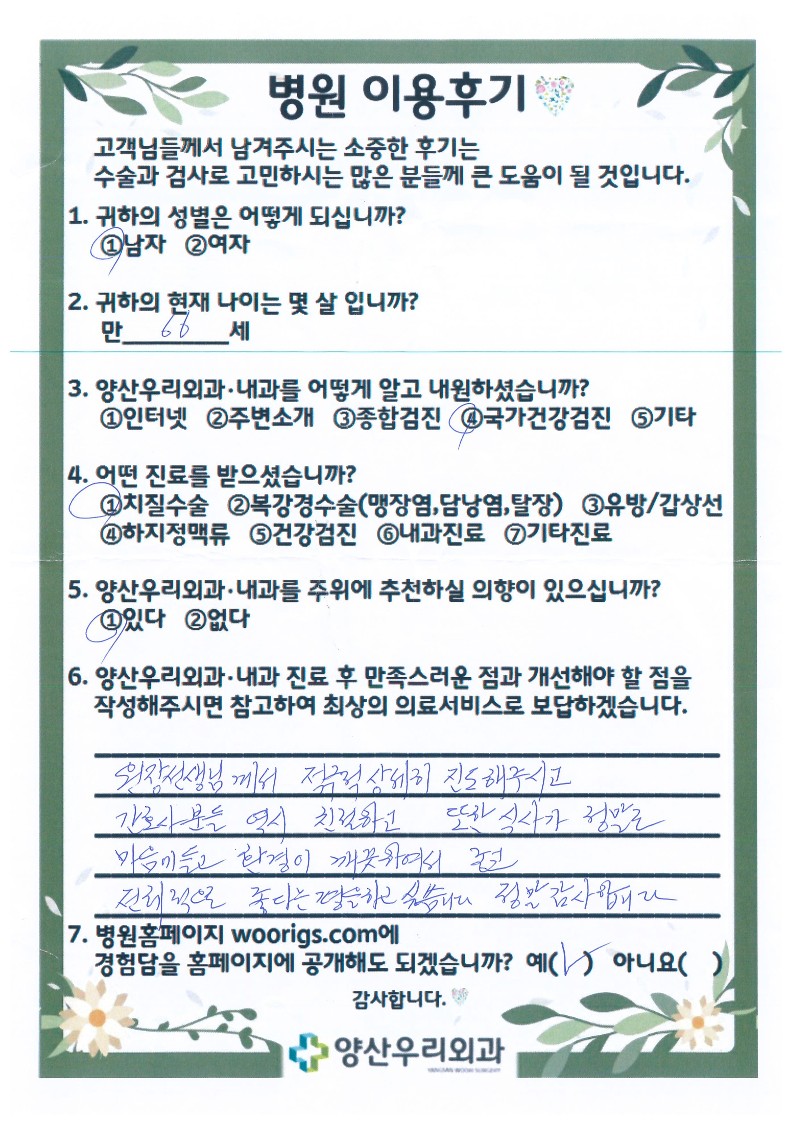 병원 이용후기
고객님들께서 남겨주시는 소중한 후기는
수술과 검사로 고민하시는 많은 분들께 큰 도움이 될 것입니다.
1. 귀하의 성별은 어떻게 되십니까?
①남자 ②여자
2. 귀하의 현재 나이는 몇 살 입니까?
만 66 세
3. 양산우리외과·내과를 어떻게 알고 내원하셨습니까?
①인터넷 ②주변소개 ③종합검진 ④국가건강검진 ⑤기타
4. 어떤 진료를 받으셨습니까?
①치질수술 ②복강경수술(맹장염,담낭염,탈장) ③유방/갑상선
④하지정맥류 ⑤건강검진 ⑥내과진료 ⑦기타진료
5. 양산우리외과·내과를 주위에 추천하실 의향이 있으십니까?
①있다 ②없다
6. 양산우리외과·내과 진료 후 만족스러운 점과 개선해야 할 점을
작성해주시면 참고하여 최상의 의료서비스로 보답하겠습니다.
원장선생님께서 적극적 상세히 진료해주시고
간호사분들 역시 친절하고 또한 식사가 정말로
마음에들고 환경이 깨끗하여서
전체적으로 좋다는 평을하고 싶습니다 정말감사합니다
7. 병원홈페이지 woorigs.com에
경험담을 홈페이지에 공개해도 되겠습니까? 예(√) 아니요( )
감사합니다.
양산우리외과
YANGSAN WOORI SURGERY